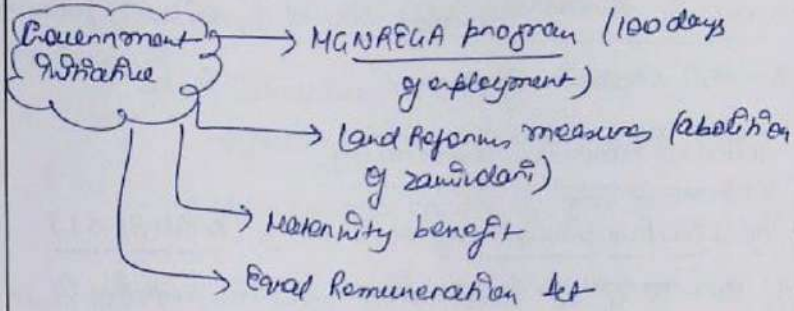 Government
Initiative
MGNREGA program (100 days
of employment)
Land Reforms measures (abolition
of zamindari)
Maternity benefit
Equal Remuneration Act